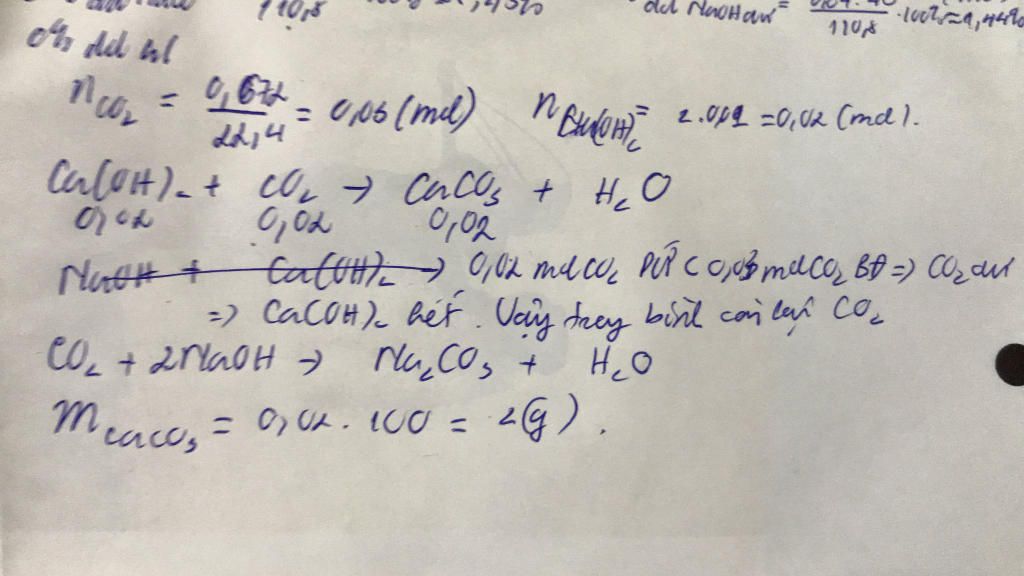 110,8
dd NaOH dư = 110,8 .100% = 1,44%
n CO₂ = 0,672 / 22,4 = 0,03 (mol) n Ba(OH)₂ = 2.0,01 = 0,02 (mol).
Ca(OH)₂ + CO₂ → CaCO₃ + H₂O
0,02 0,02 0,02
NaOH + Ca(OH)₂ → 0,02 mol CO₂ PƯ < 0,03 mol CO₂ BĐ => CO₂ dư
=> Ca(OH)₂ hết. Vậy trong bình còn lại CO₂
CO₂ + 2NaOH → Na₂CO₃ + H₂O
m CaCO₃ = 0,02 . 100 = 2(g).